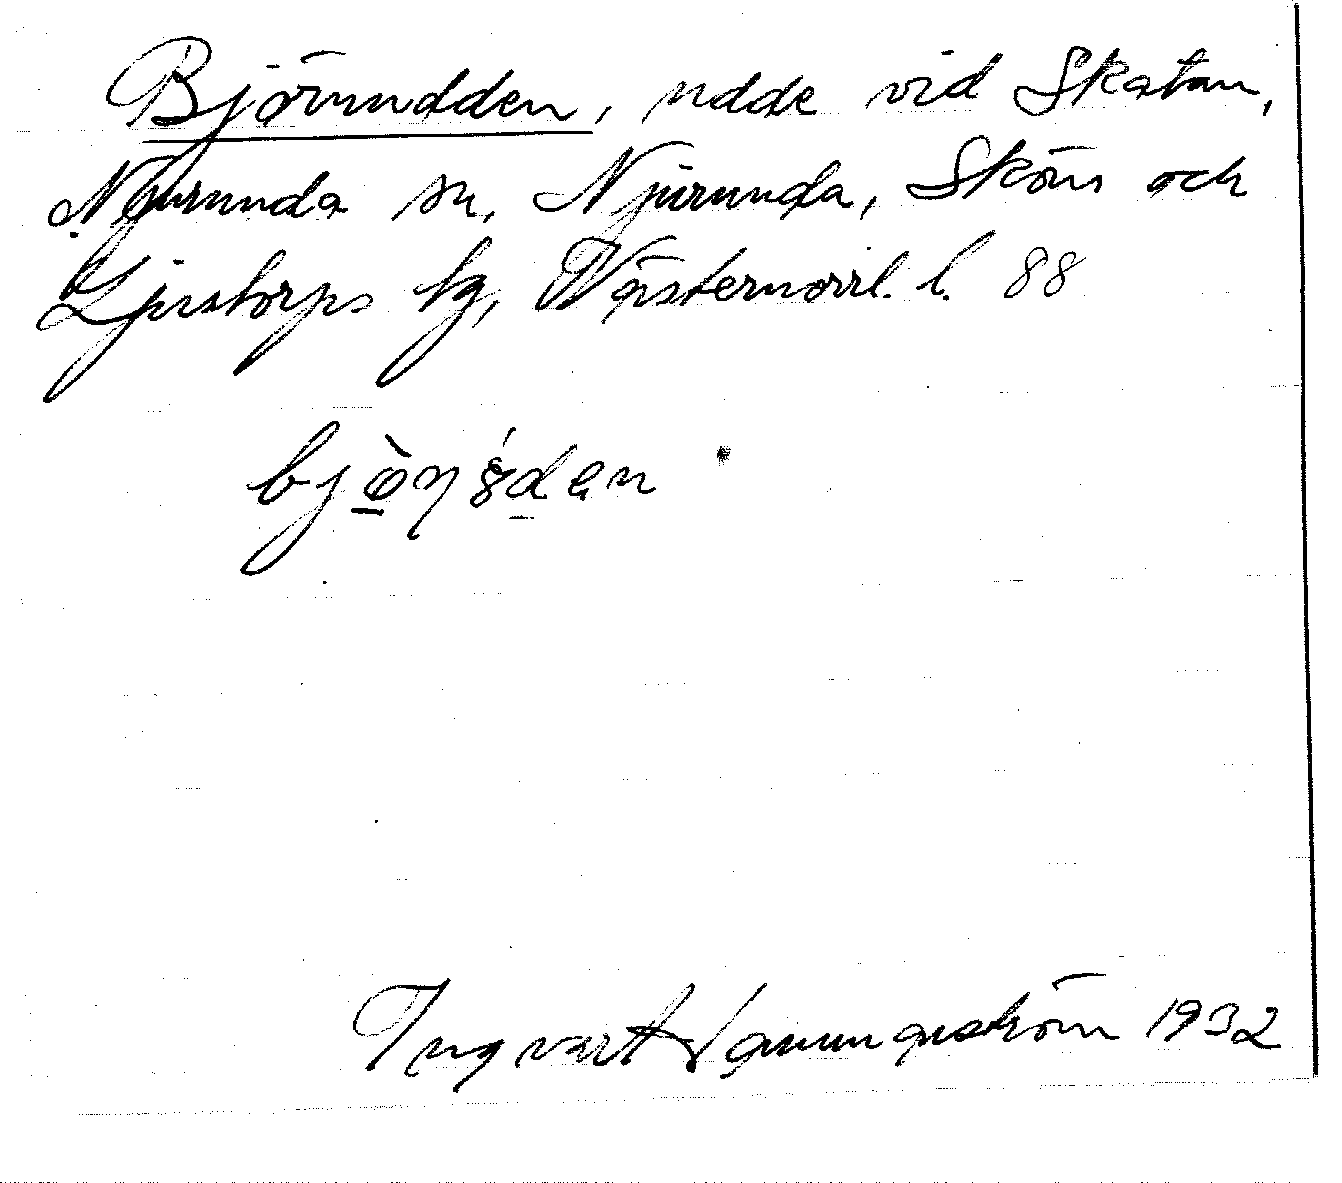 Björnudden, udde vid Skatan,
Njurunda sn, Njurunda, Sköns och
Ljustorps tg, Västernorrl. l. 88
Ingvart 1932